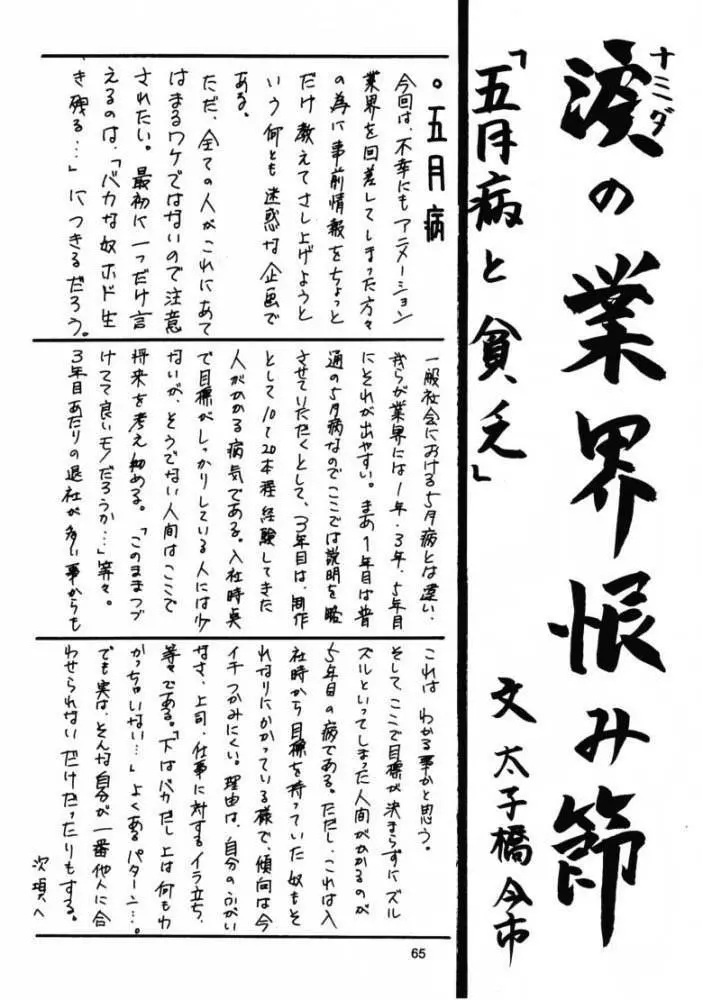 涙の業界恨み節
ナミダ
「五月病と貧乏」
文 太子橋今市
・五月病
今回は、不幸にもアニメーション
業界を回差してしまった方々
の為に事前情報をちょっと
だけ教えてさし上げようと
いう何とも迷惑な企画で
ある。
ただ、全ての人がこれにあて
はまるワケではないので注意
されたい。最初に一つだけ言
えるのは、「バカな奴ホド生
き残る…」につきるだろう。
一般社会における5月病とは違い、
我らが業界には1年・3年・5年目
にそれが出やすい。まあ1年目は普
通の5月病なのでここでは説明を略
させていただくとして、3年目は、制作
として10〜20本程経験してきた
人がかかる病気である。入社時点
で目標がしっかりしている人には少
ないが、そうでない人間はここで
将来を考え始める。「このままつづ
けてて良いモノだろうか…」等々。
3年目あたりの退社が多い事からも
これは わかる事かと思う。
そしてここで目標が決まらずにズル
ズルといってしまった人間がかかるのが
5年目の病である。ただし、これは入
社時から目標を持っていた奴もそ
れなりにかかっている様で、傾向は今
イチつかみにくい。理由は、自分のふがい
なさ、上司、仕事に対するイラ立ち、
等々である。「下はバカだし上は何もわ
かっちゃいない…」よくあるパターン…。
でも実は、そんな自分が一番他人に合
わせられないだけだったりもする。
次項へ
65